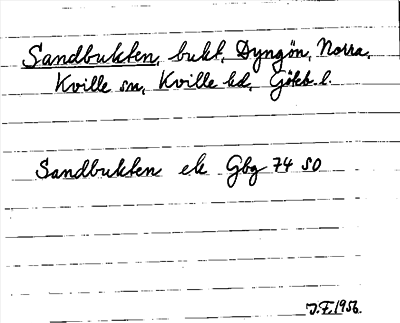 Sandbukten, bukt, Dyngön, Norra,
Kville sn, Kville hd, Götbb. l.
Sandbukten ek Gbg 74 SO
J.F. 1956.